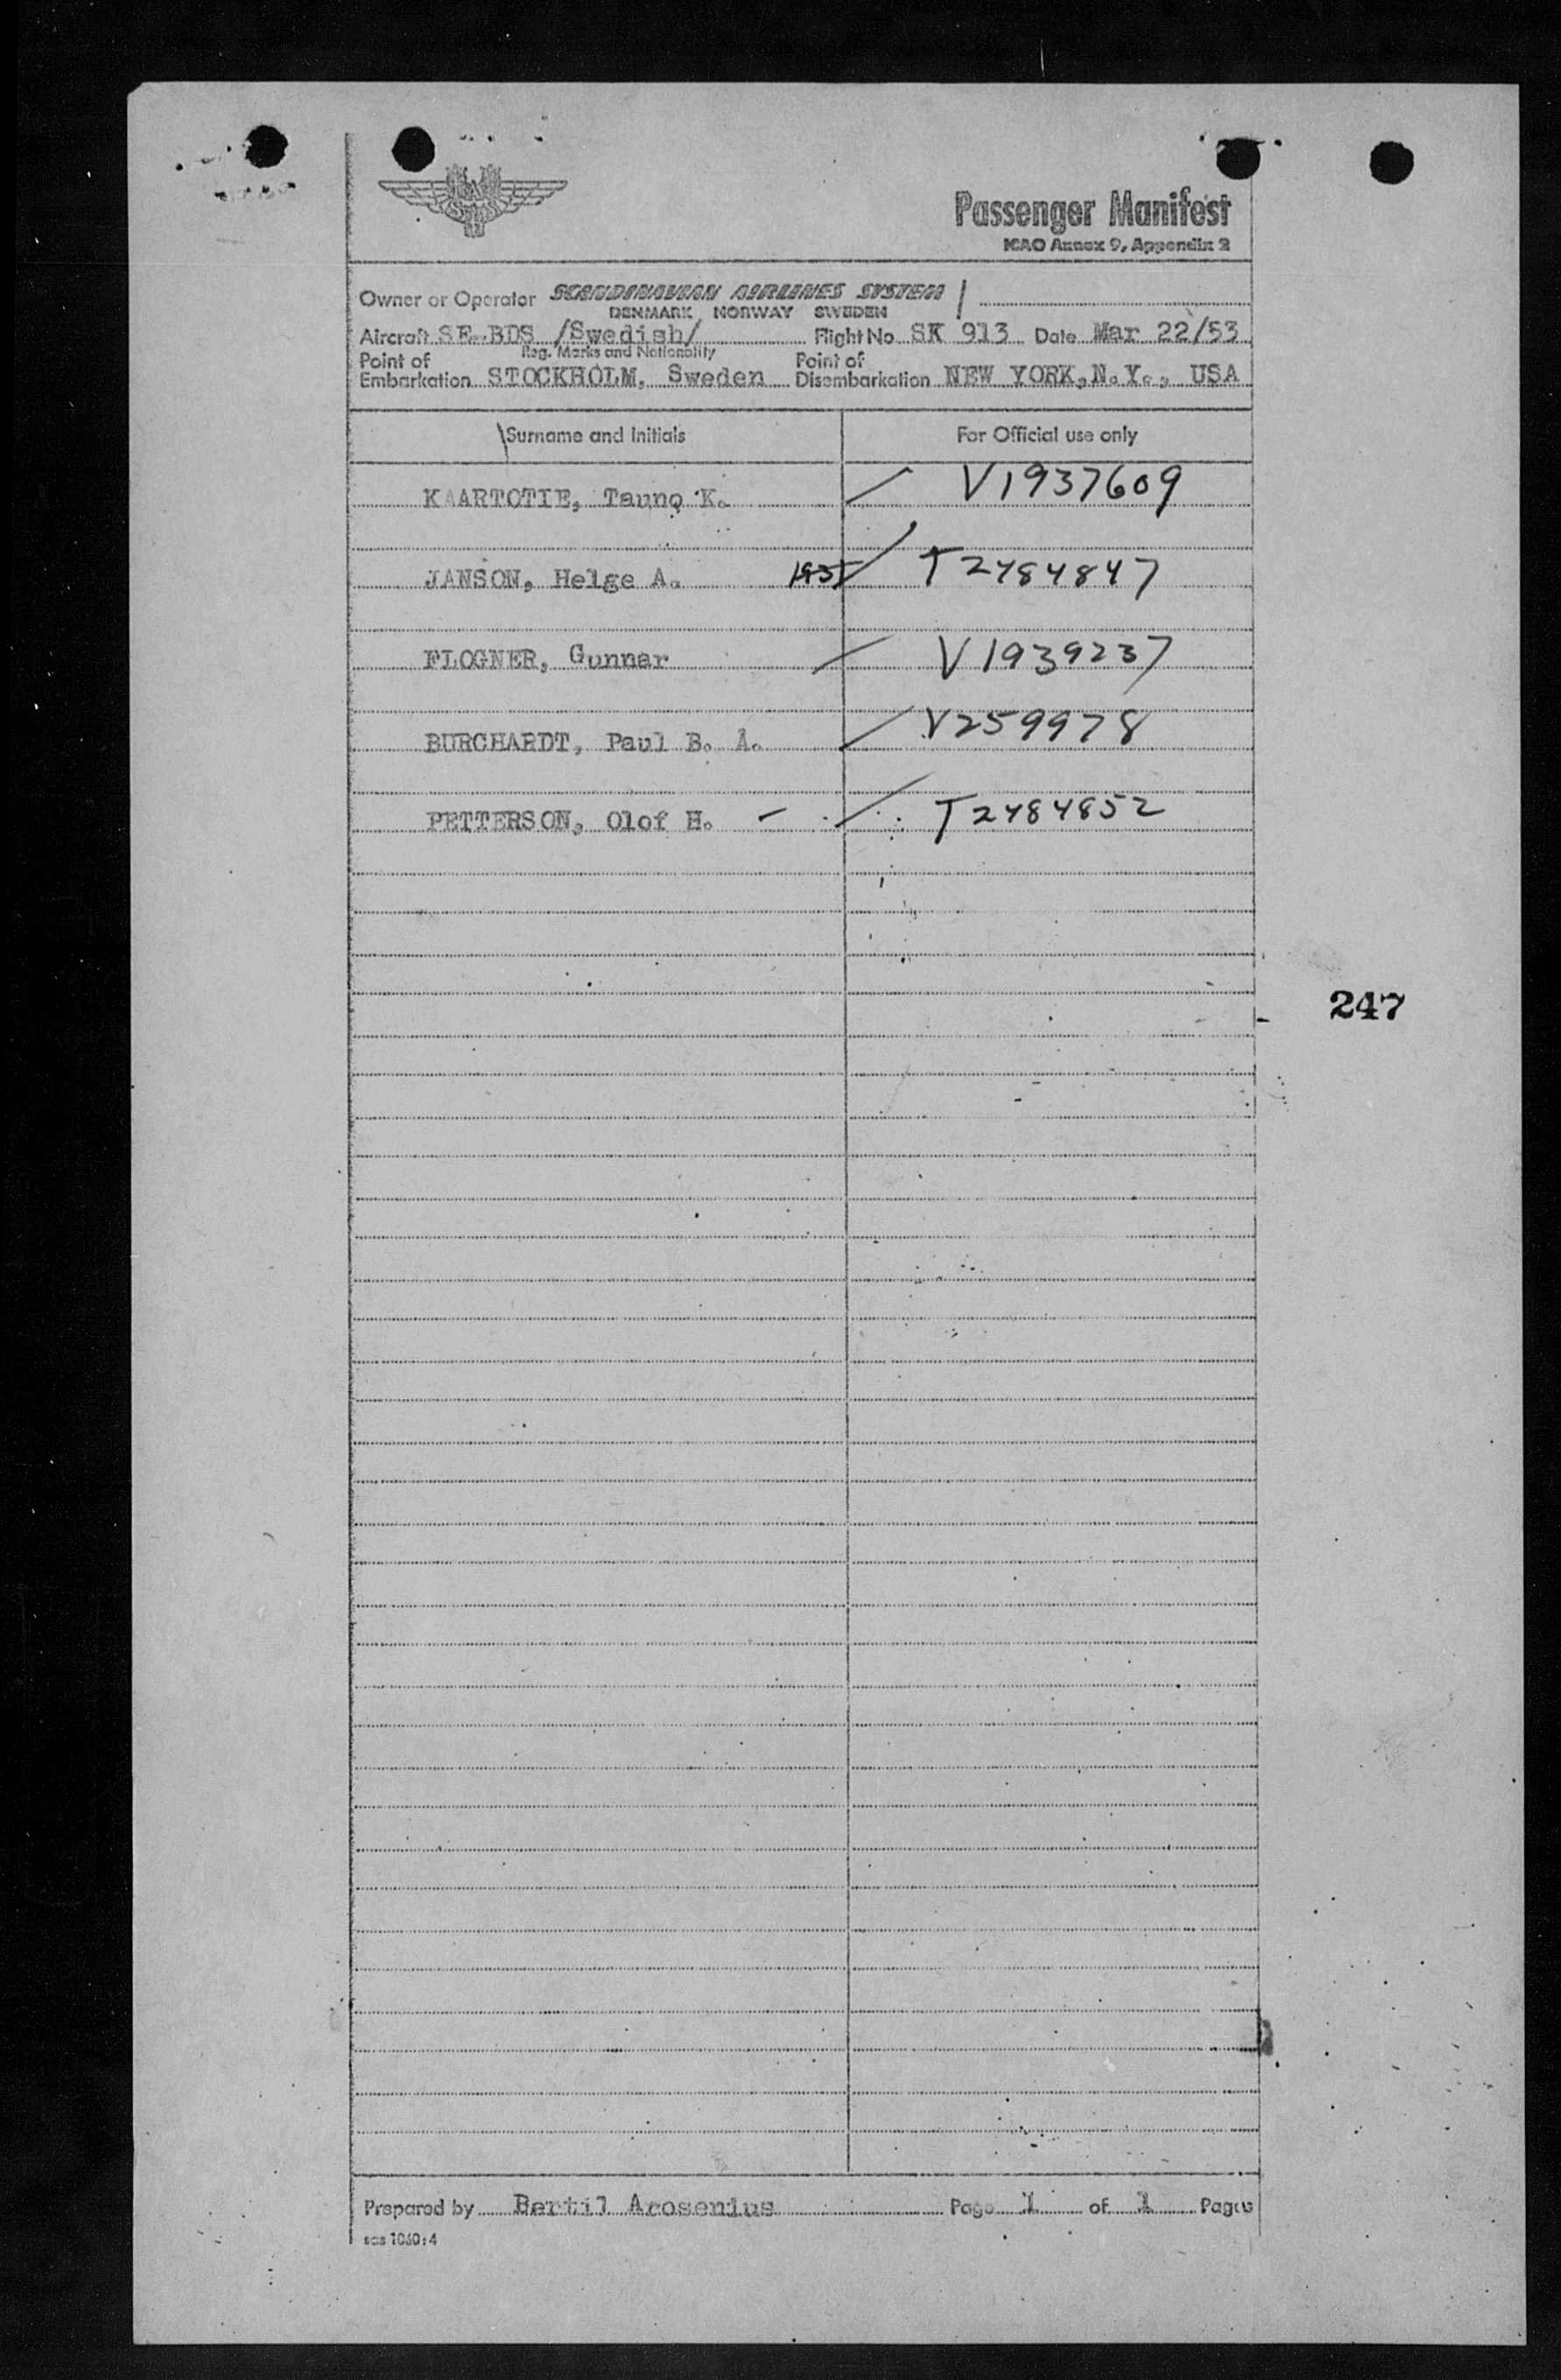 SAS
Passenger Manifest
ICAO Annex 9, Appendix 2
Owner or Operator SCANDINAVIAN AIRLINES SYSTEM
DENMARK NORWAY SWEDEN
Aircraft SE-BDS /Swedish/ Flight No. SK 913 Date Mar 22/53
Reg. Marks and Nationality
Point of Embarkation STOCKHOLM, Sweden Point of Disembarkation NEW YORK, N.Y., USA
Surname and Initials For Official use only
KAARTOTIE, Tauno K. V1937609
JANSON, Helge A. T2484847
FLOGNER, Gunnar V1939237
BURCHARDT, Paul B. A. V259978
PETTERSON, Olof H. - T2484852
247
Prepared by Bertil Arosenius Page 1 of 1 Pages
sas 1060:4